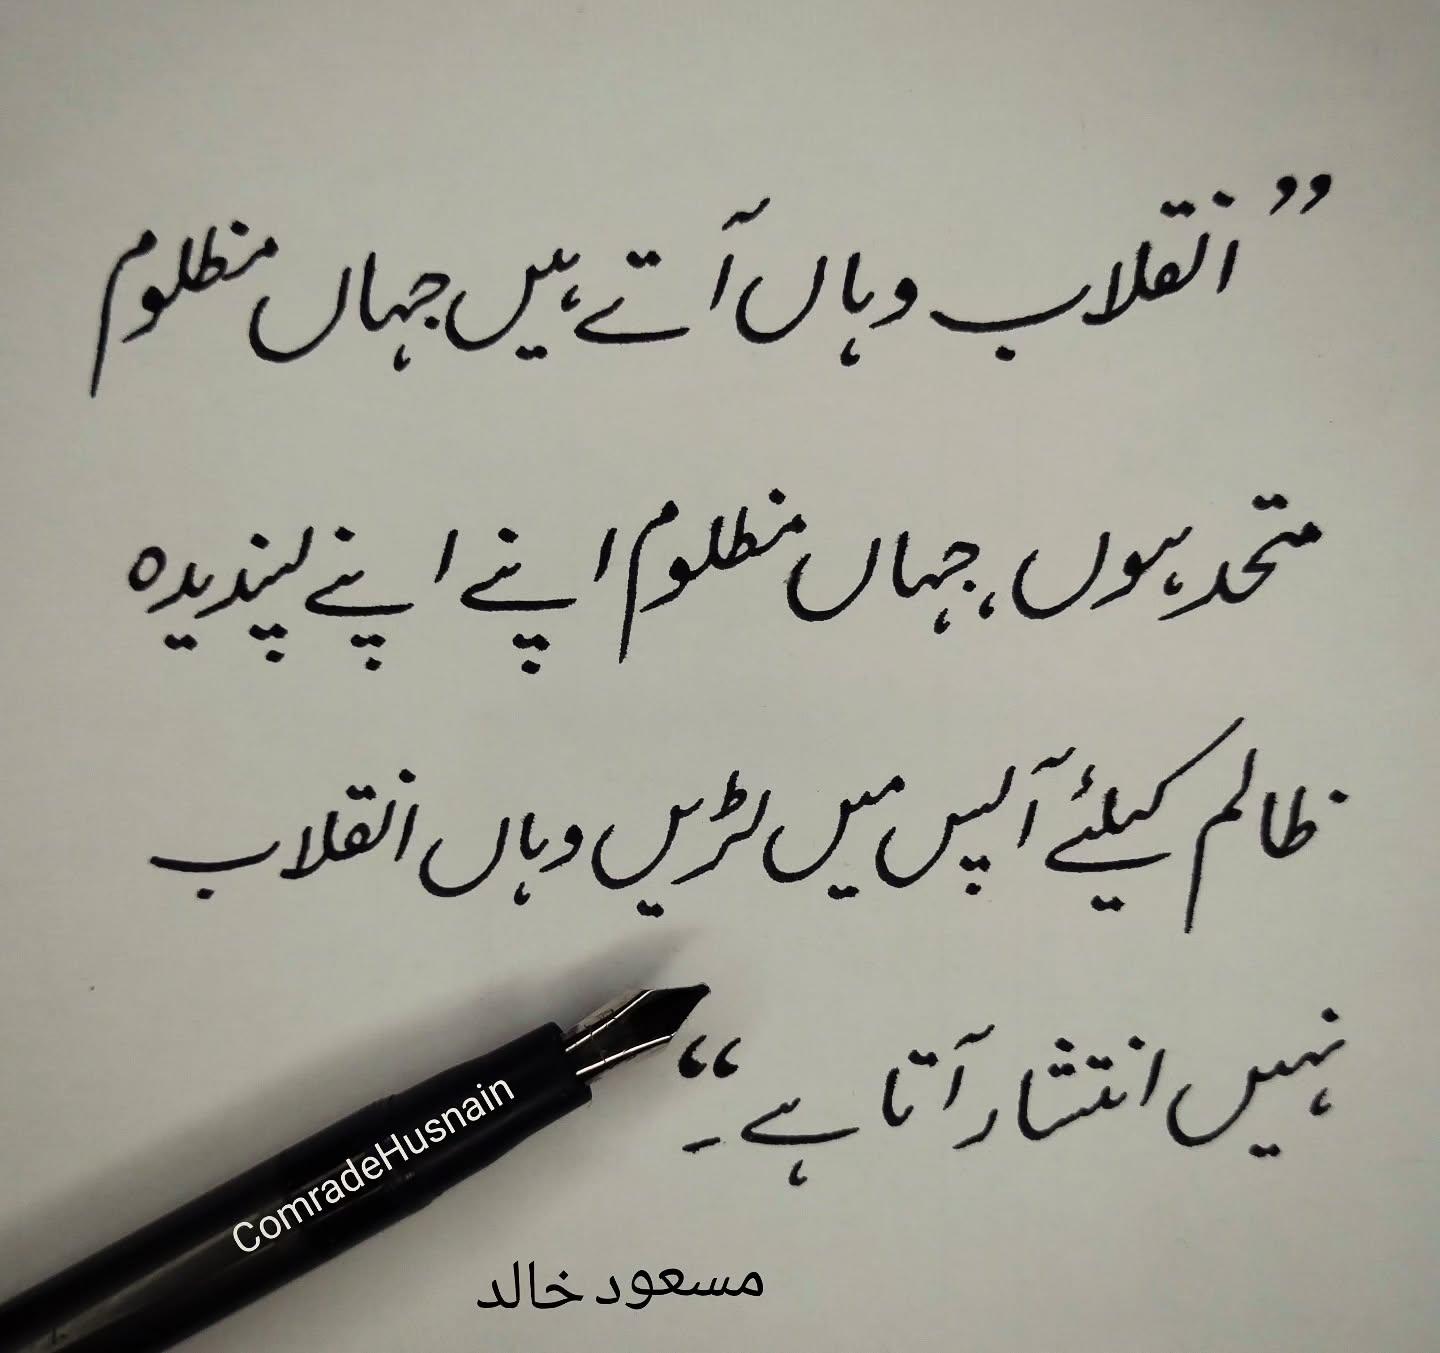 ”انقلاب وہاں آتے ہیں جہاں مظلوم
متحد ہوں، جہاں مظلوم اپنے اپنے پسندیدہ
ظالم کیلئے آپس میں لڑیں وہاں انقلاب
نہیں انتشار آتا ہے۔“
ComradeHusnain
مسعود خالد